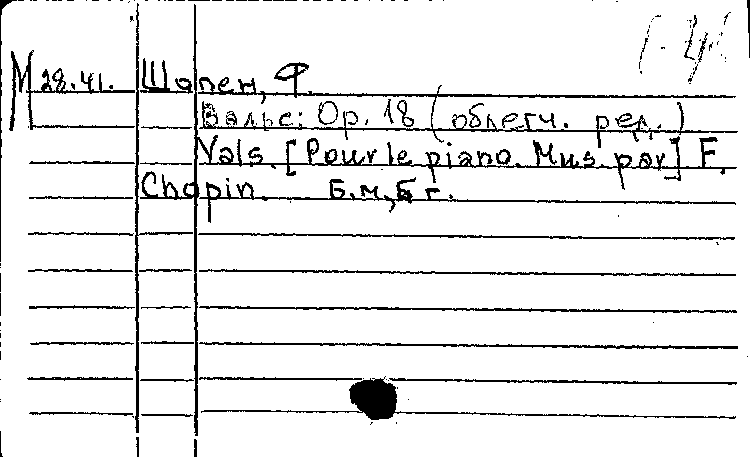 М 28.41. Шопен, Ф.
Вальс: Op. 18 (облегч. ред.)
Vals. [Pour le piano. Mus. par] F.
Chopin. Б.м., Б г.